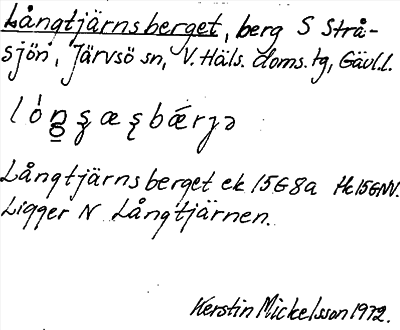 Långtjärnsberget, berg S Strå-
sjön, Järvsö sn, V. Häls. doms. tg, Gävl.l.
Långtjärnsberget ek 15G8a Hc15GNV.
Ligger N Långtjärnen.
Kerstin Mickelsson 1972.